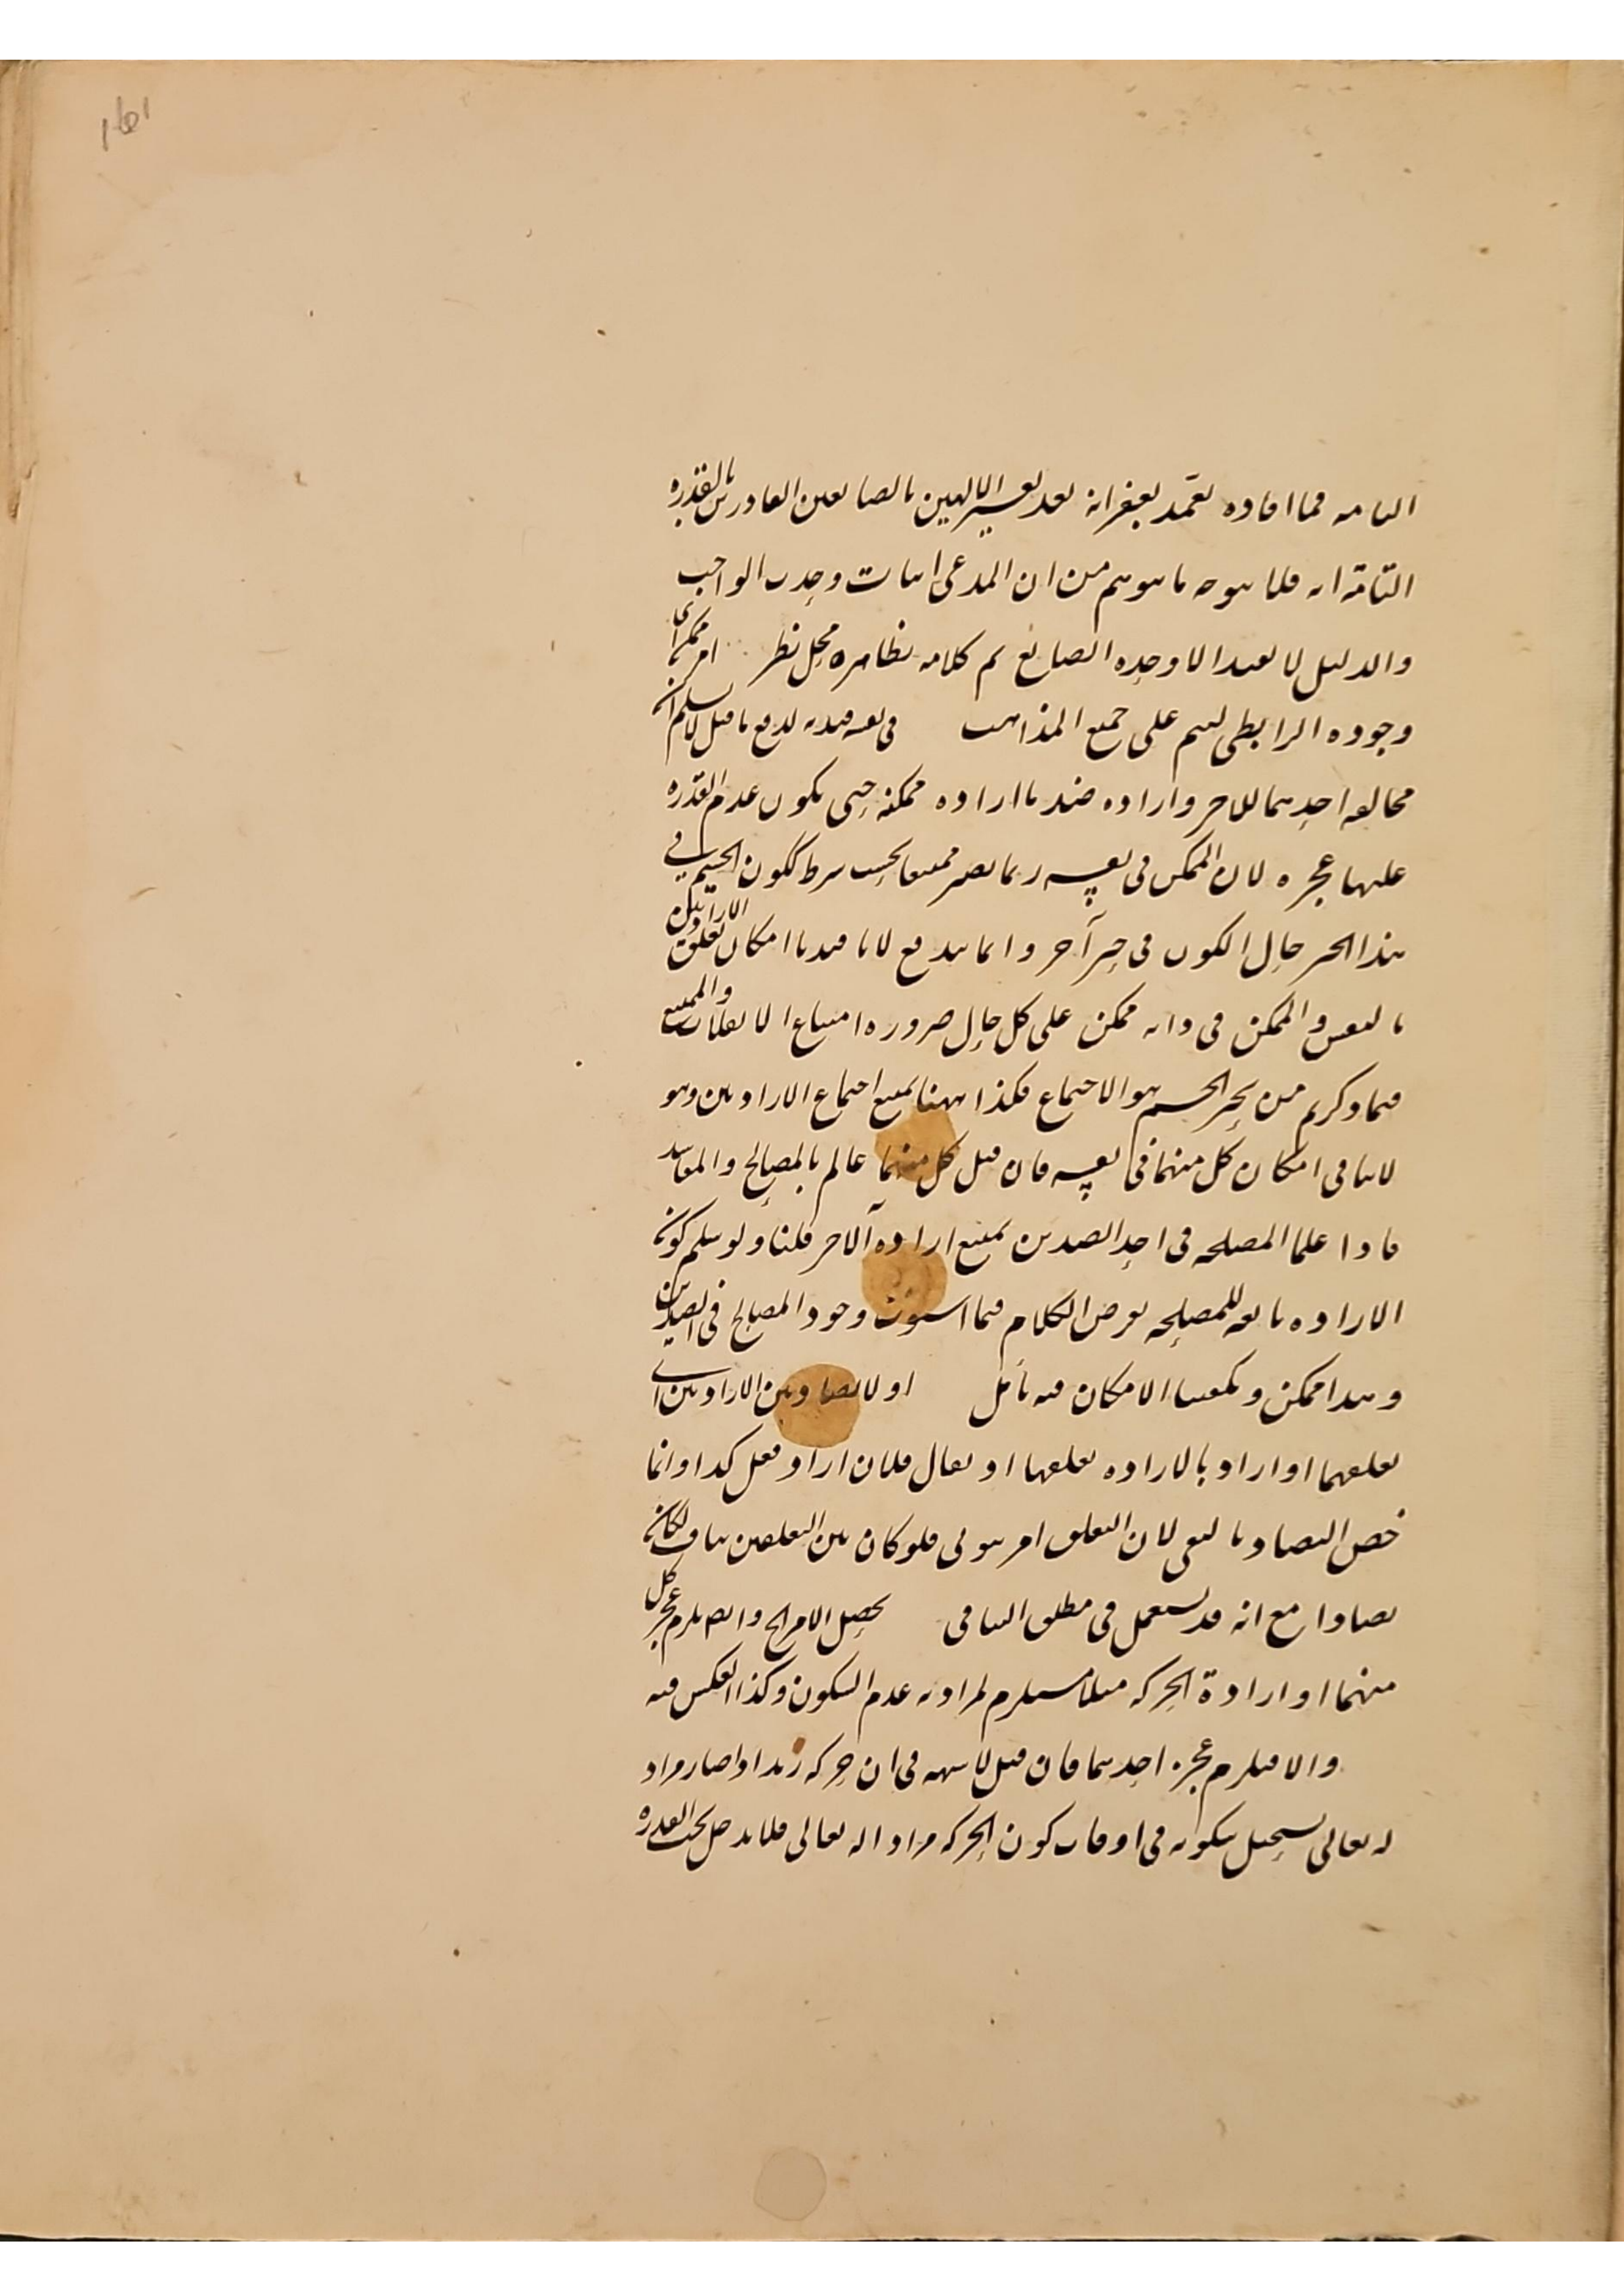 التامه فما افاده تغمد بغفرانه بعد تفسير الالهين بالصانعين القادرين بالقدره
التامة انه فلا يتوجه ما يتوهم من ان المدعى اثبات وحدت الواجب
والدليل لا يفيد الا وحده الصانع ثم كلامه بظاهره محل نظر امر ممكن اى
وجوده الرابطى ليتم على جميع المذاهب فى نفسه قيد به لدفع ما قيل لا نسلم ان
مخالفه احدهما للاخر وارادة ضد ما اراده ممكنه حتى يكون عدم القدره
عليها عجزه لان الممكن فى نفسه ربما يصير ممتنعا بحسب شرط ككون الجسم فى
هذا الحيز حال الكون فى حيز آخر وانما يندفع لانا قيدنا امكان تعلق الارادتين
بالنفس والممكن فى ذاته ممكن على كل حال ضروره امتناع الانقلاب والممتنع
فيما ذكرتم من تحيز الجسم هو الاجتماع فكذا ههنا يمتنع اجتماع الارادتين وهو
لا ينافى امكان كل منهما فى نفسه فان قيل كل منهما عالم بالمصالح والمفاسد
فاذا علما المصلحه فى احد الضدين يمتنع اراده الآخر قلنا ولو سلم كون
الاراده تابعه للمصلحه نفرض الكلام فيما استوت وجود المصالح فى الضدين
وهذا ممكن ويكفينا الامكان فيه تأمل اذ لا تضاد بين الارادتين اى
تعلقهما اذ اراد بالاراده تعلقها اذ يقال فلان اراد فعل كذا وانما
خص التضاد بالنفى لان التعلق امر ثبوتى فلو كان بين التعلقين تناف لكان
تضادا مع انه قد يستعمل فى مطلق التنافى يحصل الامران وايضا يلزم عجز كل
منهما اذ ارادة الحركه مثلا مستلزم لمرادته عدم السكون وكذا العكس فيه
والا فيلزم عجز احدهما فان قيل لا شبهه فى ان حركه زيد اذا صار مراد
له تعالى يستحيل سكونه فى اوقات كون الحركه مراد اله تعالى فلا يدخل تحت القدره